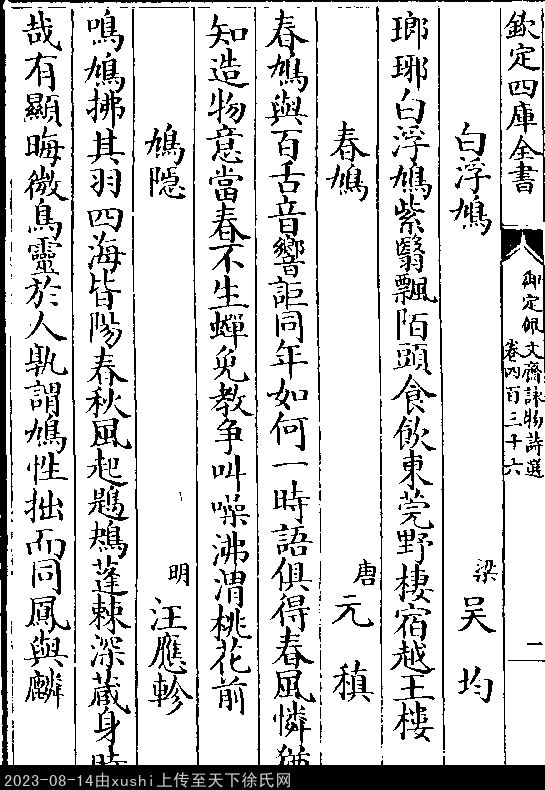 欽定四庫全書
御定佩文齋詠物詩選
卷四百三十六
二
白浮鳩
梁 吴均
瑯琊白浮鳩紫翳飄陌頭食飲東莞野棲宿越王樓
春鳩
唐 元稹
春鳩與百舌音響詎同年如何一時語俱得春風憐猶
知造物意當春不生蟬免教争叫噪沸渭桃花前
鳩隠
明 汪應軫
鳴鳩拂其羽四海皆陽春秋風起鶗鴂蓬棘深蔵身時
哉有顯晦微鳥靈於人孰謂鳩性拙而同鳳與麟
2023-08-14由xushi上传至天下徐氏网